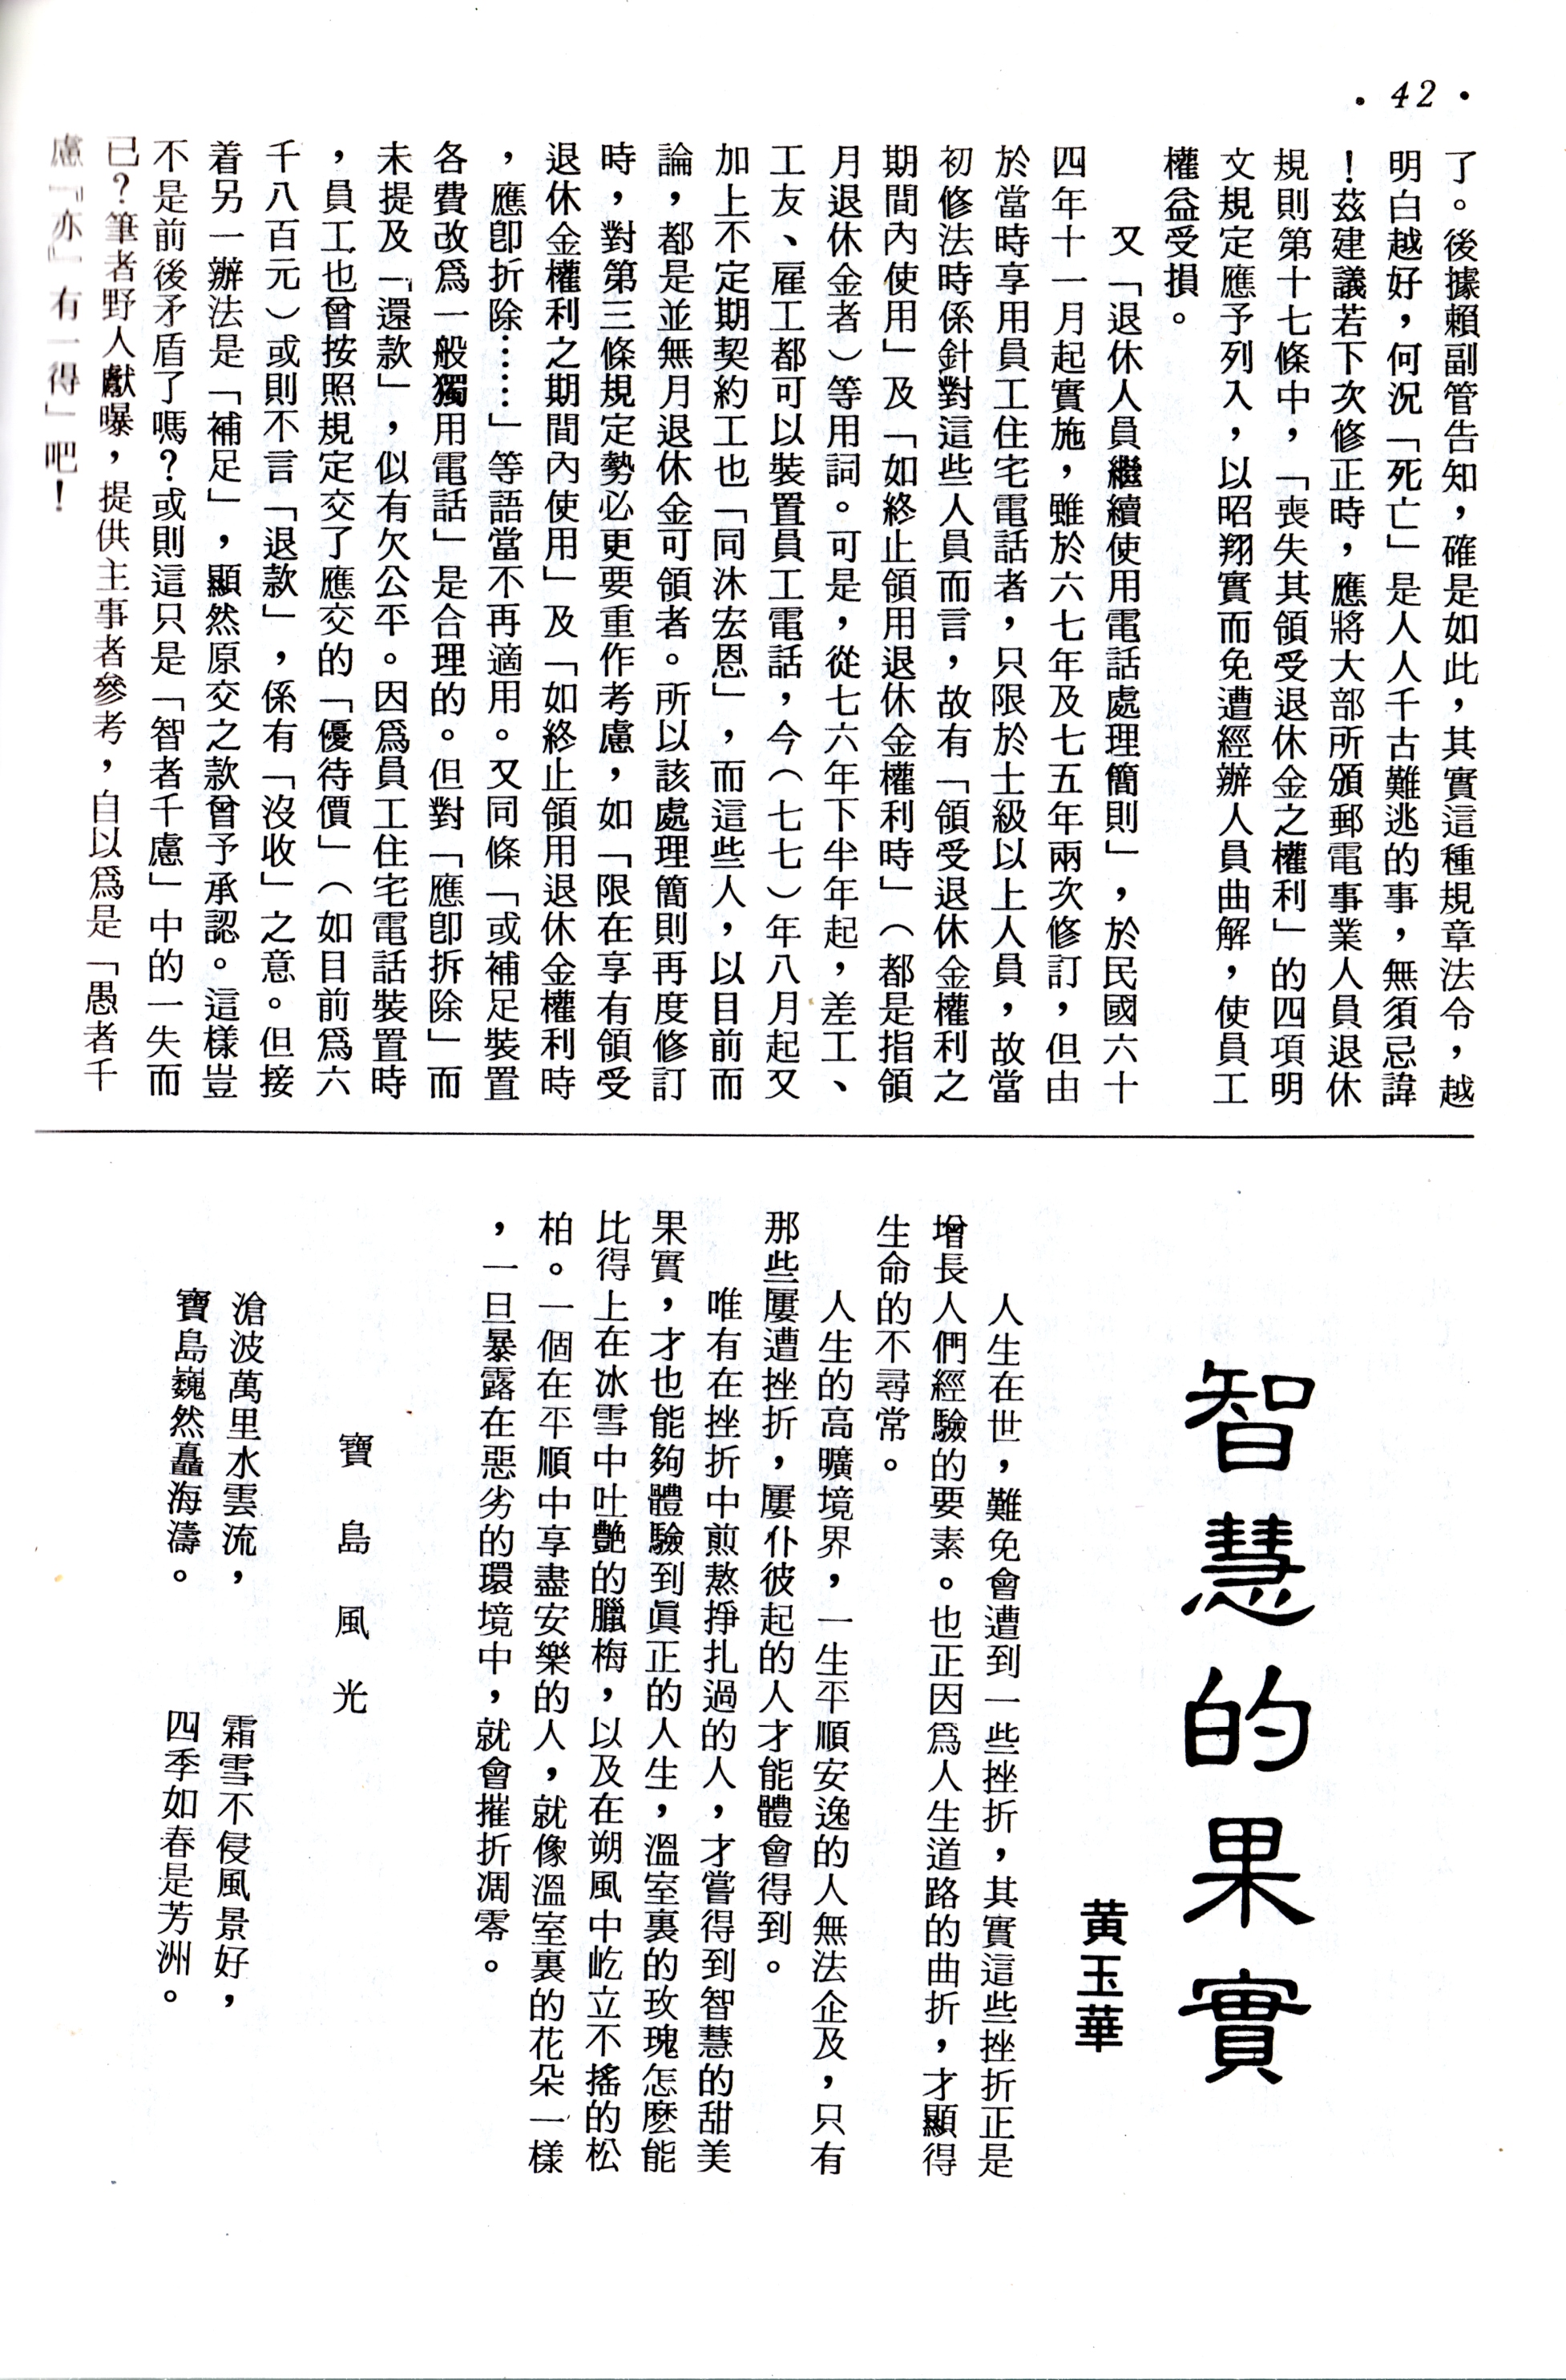 • 42 •
了。後據賴副管告知，確是如此，其實這種規章法令，越
明白越好，何況「死亡」是人人千古難逃的事，無須忌諱
！茲建議若下次修正時，應將大部所頒郵電事業人員退休
規則第十七條中，「喪失其領受退休金之權利」的四項明
文規定應予列入，以昭翔實而免遭經辦人員曲解，使員工
權益受損。
又「退休人員繼續使用電話處理簡則」，於民國六十
四年十一月起實施，雖於六七年及七五年兩次修訂，但由
於當時享用員工住宅電話者，只限於士級以上人員，故當
初修法時係針對這些人員而言，故有「領受退休金權利之
期間內使用」及「如終止領用退休金權利時」（都是指領
月退休金者）等用詞。可是，從七六年下半年起，差工、
工友、雇工都可以裝置員工電話，今（七七）年八月起又
加上不定期契約工也「同沐宏恩」，而這些人，以目前而
論，都是並無月退休金可領者。所以該處理簡則再度修訂
時，對第三條規定勢必更要重作考慮，如「限在享有領受
退休金權利之期間內使用」及「如終止領用退休金權利時
，應卽折除……」等語當不再適用。又同條「或補足裝置
各費改爲一般獨用電話」是合理的。但對「應卽拆除」而
未提及「還款」，似有欠公平。因爲員工住宅電話裝置時
，員工也曾按照規定交了應交的「優待價」（如目前爲六
千八百元）或則不言「退款」，係有「沒收」之意。但接
着另一辦法是「補足」，顯然原交之款曾予承認。這樣豈
不是前後矛盾了嗎？或則這只是「智者千慮」中的一失而
已？筆者野人獻曝，提供主事者參考，自以爲是「愚者千
慮『亦』有一得」吧！
智慧的果實
黃玉華
人生在世，難免會遭到一些挫折，其實這些挫折正是
增長人們經驗的要素。也正因爲人生道路的曲折，才顯得
生命的不尋常。
人生的高曠境界，一生平順安逸的人無法企及，只有
那些屢遭挫折，屢仆彼起的人才能體會得到。
唯有在挫折中煎熬掙扎過的人，才嘗得到智慧的甜美
果實，才也能夠體驗到眞正的人生，溫室裏的玫瑰怎麽能
比得上在冰雪中吐艷的臘梅，以及在朔風中屹立不搖的松
柏。一個在平順中享盡安樂的人，就像溫室裏的花朵一樣
，一旦暴露在惡劣的環境中，就會摧折凋零。
寶島風光
滄波萬里水雲流，
寶島巍然矗海濤。
霜雪不侵風景好，
四季如春是芳洲。